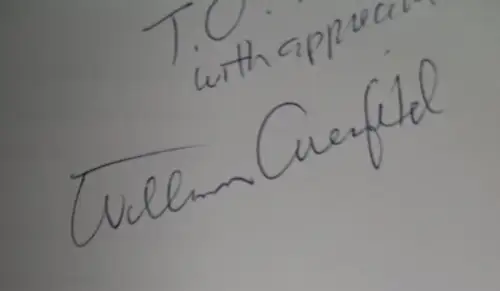 T.O.
with apprecia
William Overfield